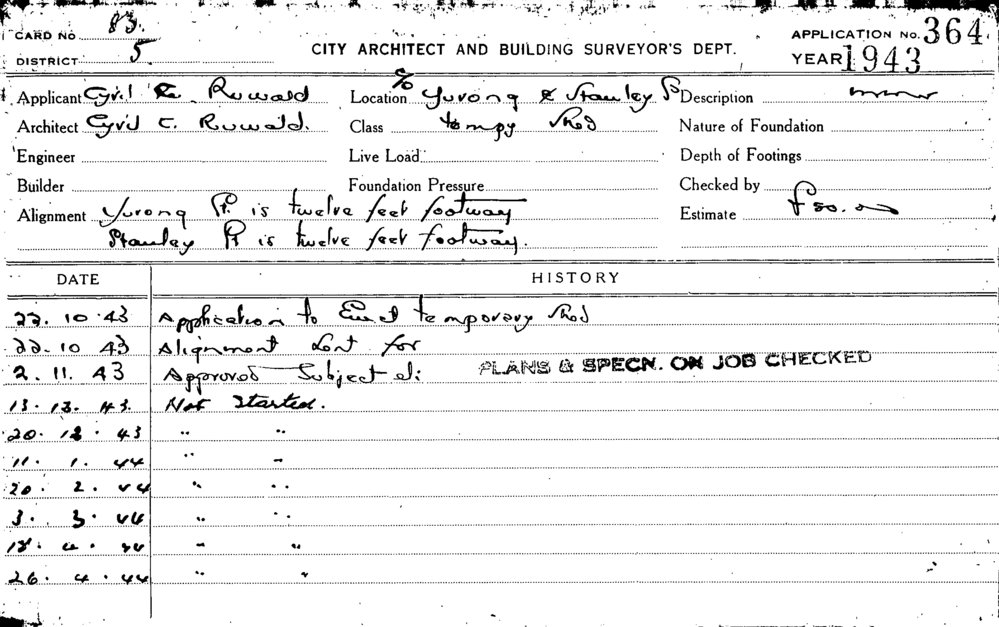 CARD No 83.
APPLICATION No. 364
DISTRICT 5
CITY ARCHITECT AND BUILDING SURVEYOR'S DEPT.
YEAR 1943
Applicant Cyril Ruwald
Location C/o Yurong & Stanley St
Description
Architect Cyril C. Ruwald.
Class tempy Shed
Nature of Foundation
Engineer
Live Load
Depth of Footings
Builder
Foundation Pressure
Checked by
Alignment Yurong St. is twelve feet footway
Estimate £50.
Stanley St is twelve feet footway.
DATE HISTORY
22. 10. 43 Application to Erect temporary Shed
22. 10 43 Alignment for
2. 11. 43 Approved Subject PLANS & SPECN. ON JOB CHECKED
13. 12. 43. Not Started.
20. 12. 43 " "
11. 1. 44 " "
20. 2. 44 " "
3. 3. 44 " "
4. 44 " "
26. 4. 44 " "